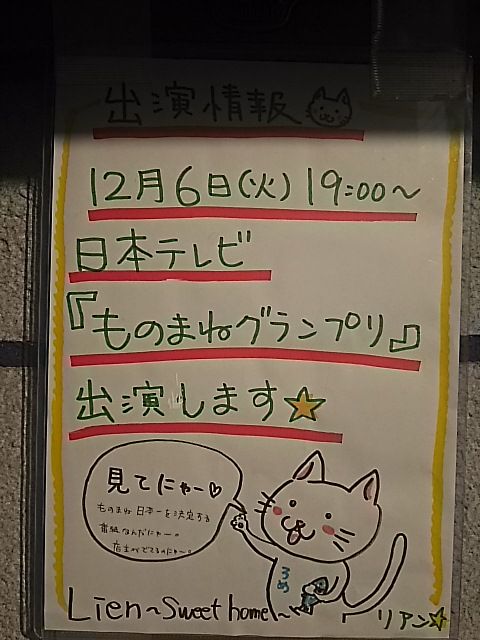 出演情報
12月6日(火)19:00～
日本テレビ
『ものまねグランプリ』
出演します☆
見てにゃー♡
ものまね日本一を決定する
番組なんだにゃー。
店主がでてるのにゃー。
ろめ
Lien～Sweet home～
リアン☆